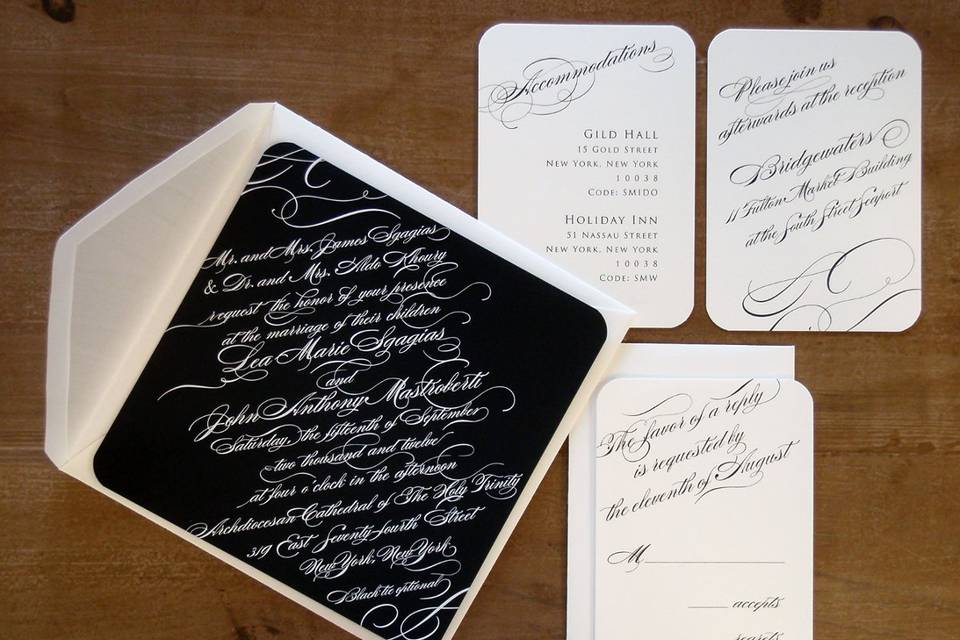 Mr. and Mrs. James Sgagias
& Dr. and Mrs. Aldo Khoury
request the honor of your presence
at the marriage of their children
Lea Marie Sgagias
and
John Anthony Mastroberti
Saturday, the fifteenth of September
two thousand and twelve
at four o'clock in the afternoon
Archdiocesan Cathedral of The Holy Trinity
319 East Seventy-fourth Street
New York, New York
Black tie optional
Accommodations
Gild Hall
15 Gold Street
New York, New York
10038
Code: SMIDO
Holiday Inn
51 Nassau Street
New York, New York
10038
Code: SMW
Please join us
afterwards at the reception
Bridgewaters
11 Fulton Market Building
at the South Street Seaport
The favor of a reply
is requested by
the eleventh of August
M
accepts
regrets